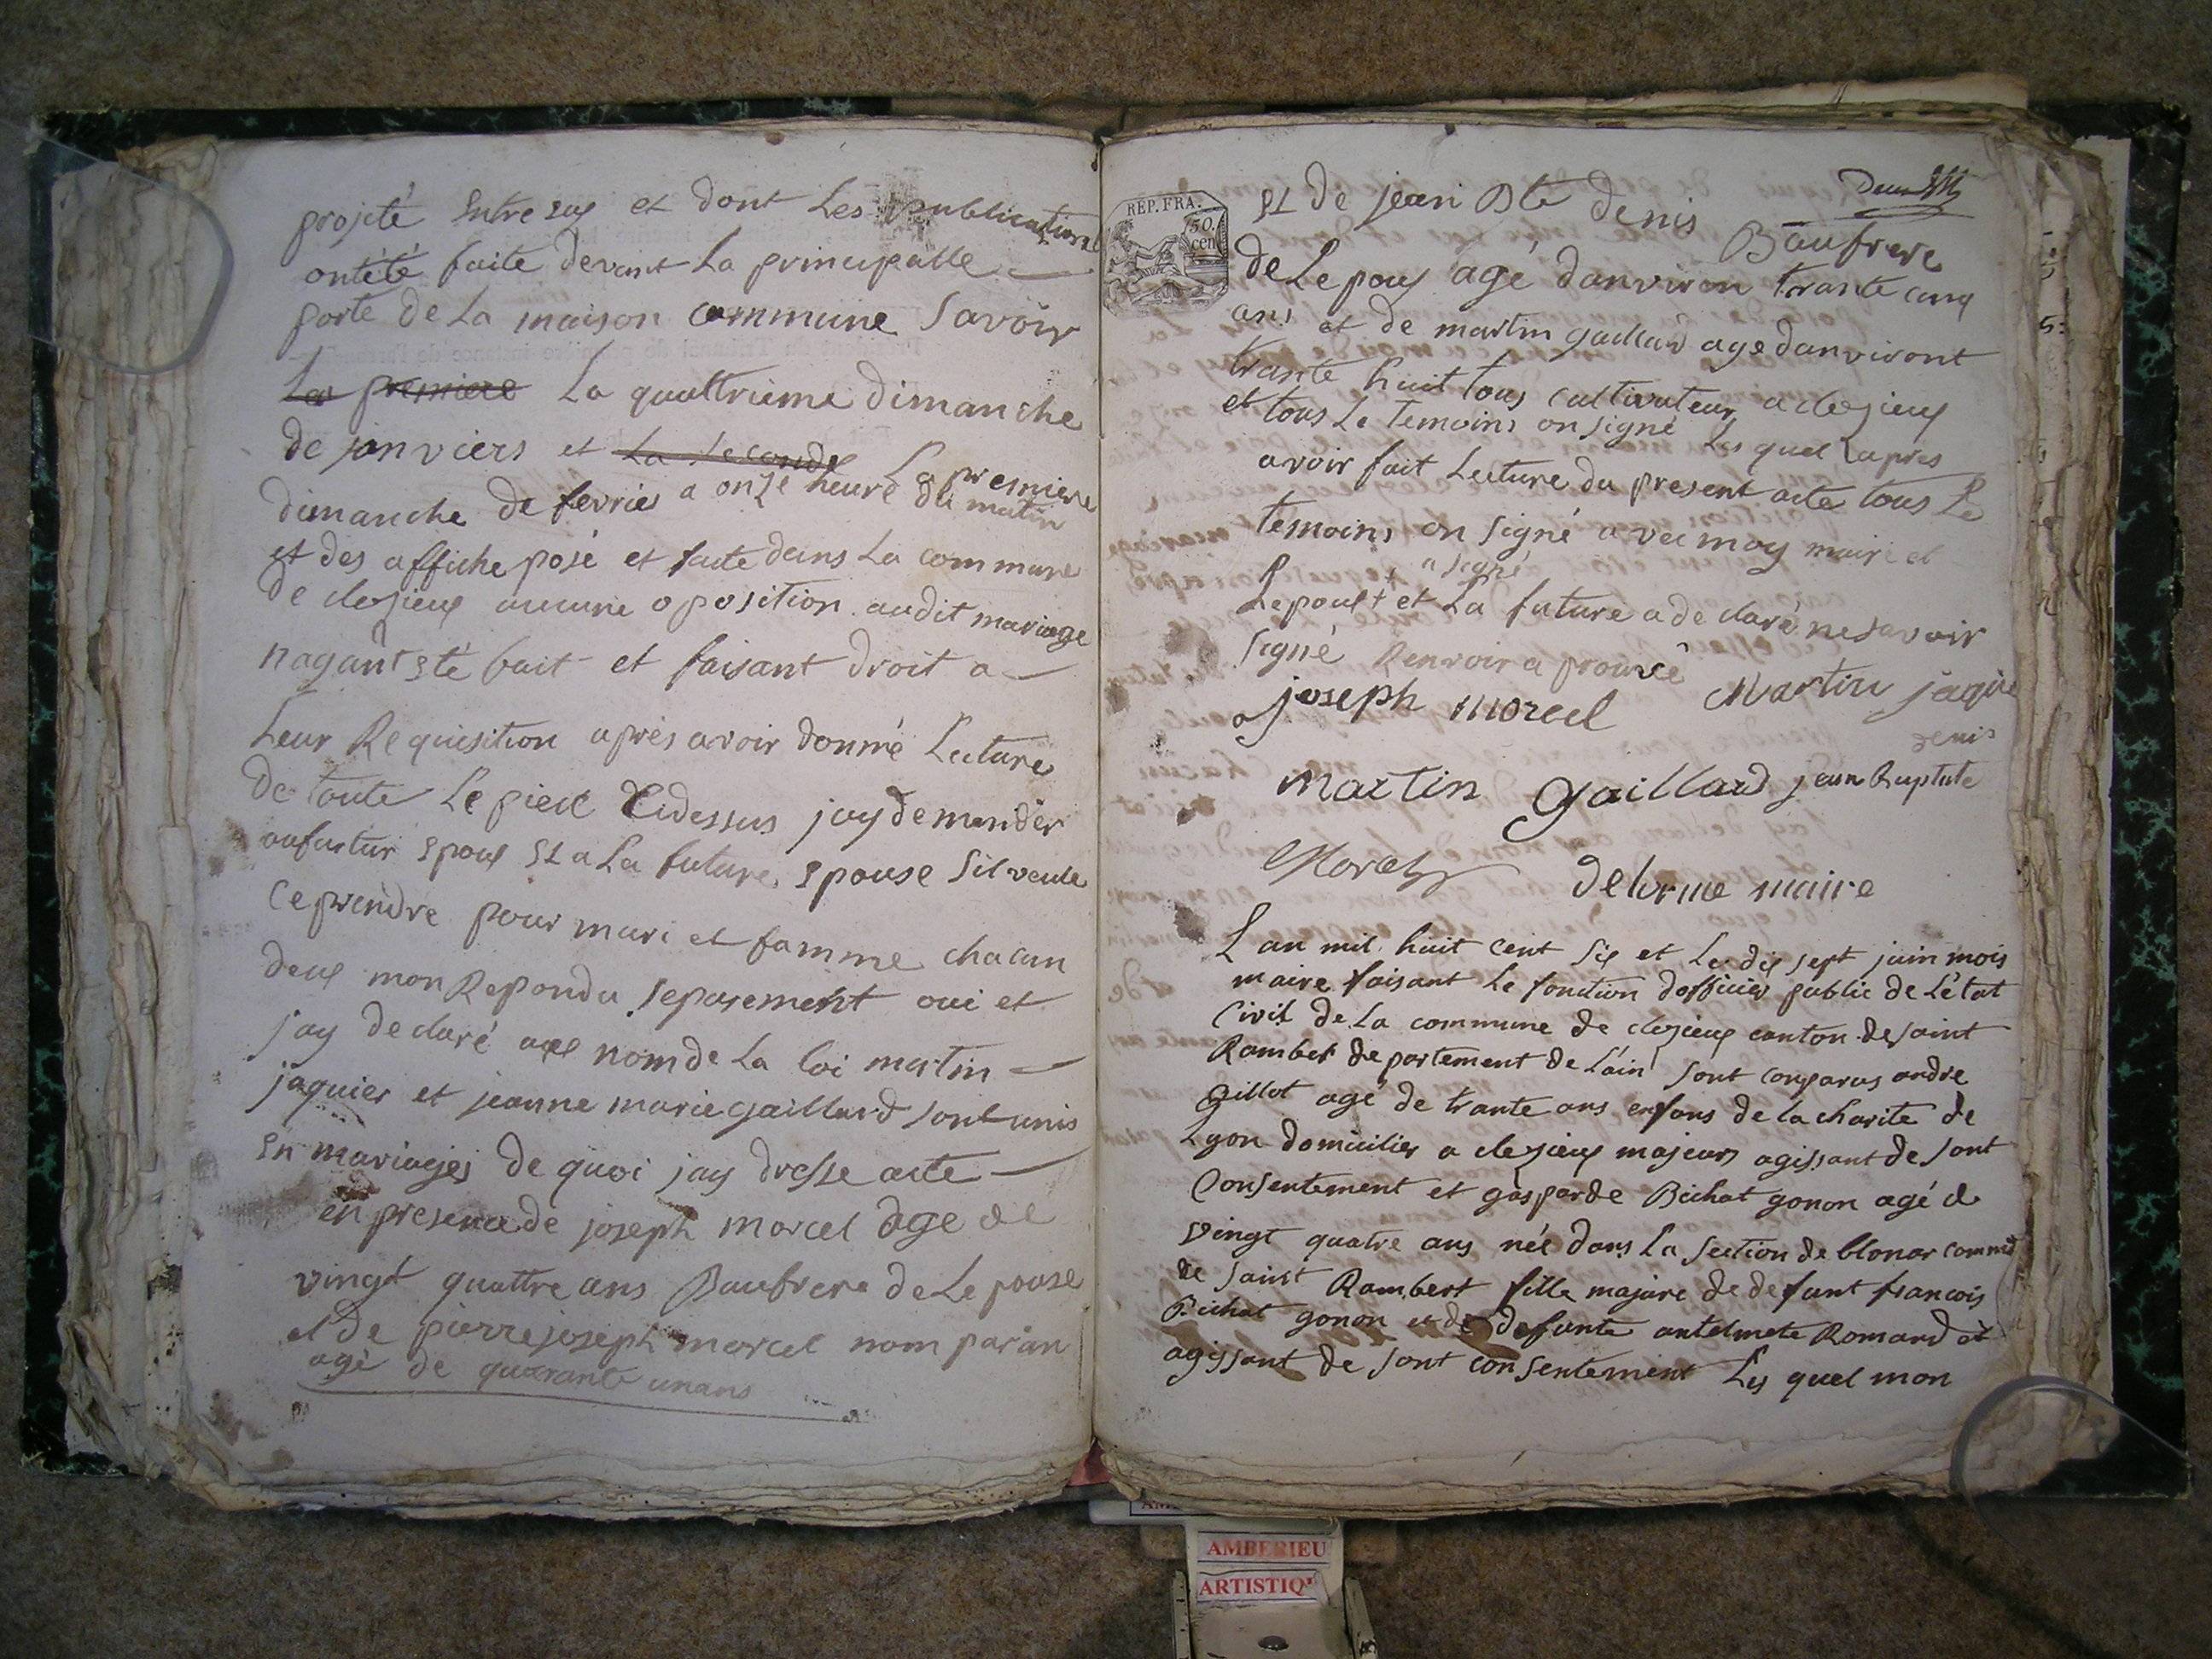 projeté Entre eux et dont Les publications
ontété faite devant La principalle
porte de La maison commune Savoir
La premiere La quattrieme dimanche
de janviers et La seconde La premiere
dimanche de fevries a onze heure du matin
et des affiche posé et faite dans La commune
de clezieux aucune oposition audit mariage
nayant Eté fait et faisant droit a
Leur Requisition aprés avoir donné Lecture
de toute Le piece Cidessus jay demander
aufutur Epoux Et a La future Epouse Sil veule
Ce prendre pour mari et famme chacun
deux mon Repondu Separement oui et
jay declaré aux nom de La loi martin
jaquier et jeanne marie gaillard sont unis
En mariages de quoi jay dresse acte
en presence de joseph morcel age de
vingt quattre ans Baufrere de Lepouse
et de pierre joseph morcel nom parans
agé de quarante unans
REP. FRA.
50.
cen
Et de jean Bte denis Baufrere
de Lepoux agé danviron trante cinq
ans et de martin gaillard age danviront
trante huit tous cultivateur a clezieux
et tous Le temoins on signé Les quel apres
avoir fait Lecture du present acte tous Le
temoins on signé avec moy maire et
a signé
Lepoux + et La future a declaré ne savoir
signé Renvoir a prouvé
joseph morcel Martin jaquie
denis
martin gaillard jean Baptiste
Morcel delorme maire
Lan mil huit cent Six et Le dix sept juin mois
maire faisant Le fonction dofficier public de Létat
Civil de La commune de clezieux canton de saint
Rambert departement de Lain Sont comparus andre
gillot agé de trante ans enfans de la charite de
Lyon domicilier a clezieux majeurs agissant de sont
Consentement et gasparde Bichat gonon agé de
vingt quatre ans née dans La Section de blanas
de Saint Rambert fille majure de defunt francois
Bichat gonon et de defunte antelmete Romand et
agissant de sont consentement Les quel mon
AMBERIEU
ARTISTIQ